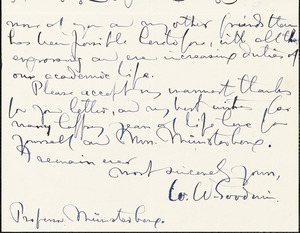 more of you and my other friends than
has been possible heretofore, with all the
engrossing and ever increasing duties of
our academic life.
Please accept my warmest thanks
for your letter, and my best wishes for
many happy years of life here for
yourself and Mrs. Münsterberg.
I remain ever
most sincerely yours,
W. W. Goodwin.
Professor Münsterberg.